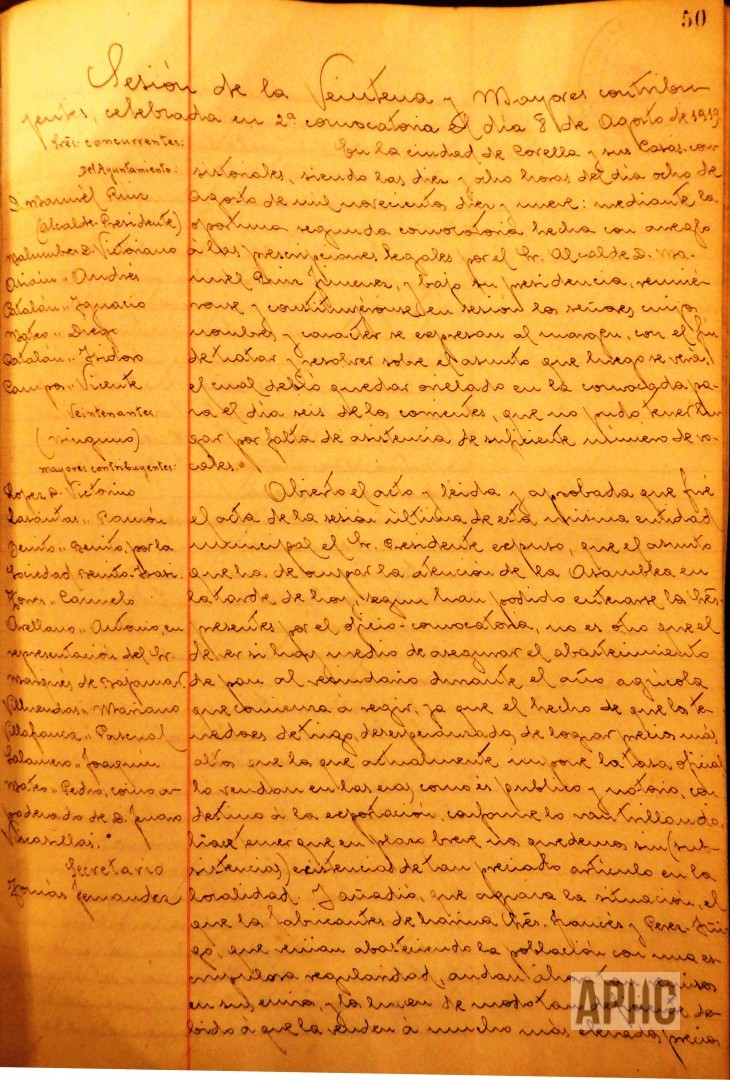 50
Sesión de la Veintena y Mayores contribu-
yentes, celebrada en 2ª convocatoria el día 8 de Agosto de 1919
Sres. concurrentes:
Del Ayuntamiento:
D. Manuel Ruiz
(Alcalde-Presidente)
Malumbres D. Victoriano
Asiáin " Andrés
Catalán " Ignacio
Mateo " Diego
Catalán " Isidoro
Campos " Vicente
Veintenantes
(ninguno)
Mayores contribuyentes:
López D. Victorino
Lasantas " Ramón
Benito " Benito, por la
Sociedad Benito
Arellano " Antonio, en
representación del Sr.
Marqués de
Villafranca " Pascual
Salamero " Joaquín
Mateo " Pedro, como a-
poderado de D. Genaro
Secretario
Tomás Fernandez
En la ciudad de Corella y sus Casas con-
sistoriales, siendo las diez y ocho horas del día ocho de
Agosto de mil novecientos diez y nueve: mediante la
oportuna segunda convocatoria hecha con arreglo
á las prescripciones legales por el Sr. Alcalde D. Ma-
nuel Ruiz Jimenez, y bajo su presidencia, reunié-
ronse y constituyéronse en sesión los señores cuyos
nombres y carácter se expresan al margen, con el fin
de tratar y resolver sobre el asunto que luego se verá,
el cual debió quedar en la convocada pa-
ra el día seis de los corrientes, que no pudo tener lu-
gar por falta de asistencia de suficiente número de vo-
cales.
Abierto el acto y leida y aprobada que fué
el acta de la sesión última de esta misma entidad
municipal el Sr. Presidente expuso, que el asunto
que ha de ocupar la atención de la Asamblea en
la tarde de hoy, segun han podido enterarse los Sres.
presentes por el oficio-convocatoria, no es otro que el
de ver si hay medio de asegurar el abastecimiento
de pan al vecindario durante el año agrícola
que comienza á regir, ya que el hecho de que los te-
nedores de trigo, desesperanzados de lograr precios más
altos que los que actualmente impone la tasa oficial
lo vendan en las eras, como es publico y notorio, con
destino á la exportación, conforme lo van trillando,
hace temer que en plazo breve nos quedemos sin (sub-
sistencias) existencias de tan preciado artículo en la
localidad. Y añadió, que agrava la situación, el
que los fabricantes de harina Sres. Francés y Perez-Iñi-
go, que venian abasteciendo la población con una es-
crupulosa regularidad, andan
en su envio, y lo hacen de modo tan de-
bido á que la venden á mucho más elevados precios
APHC